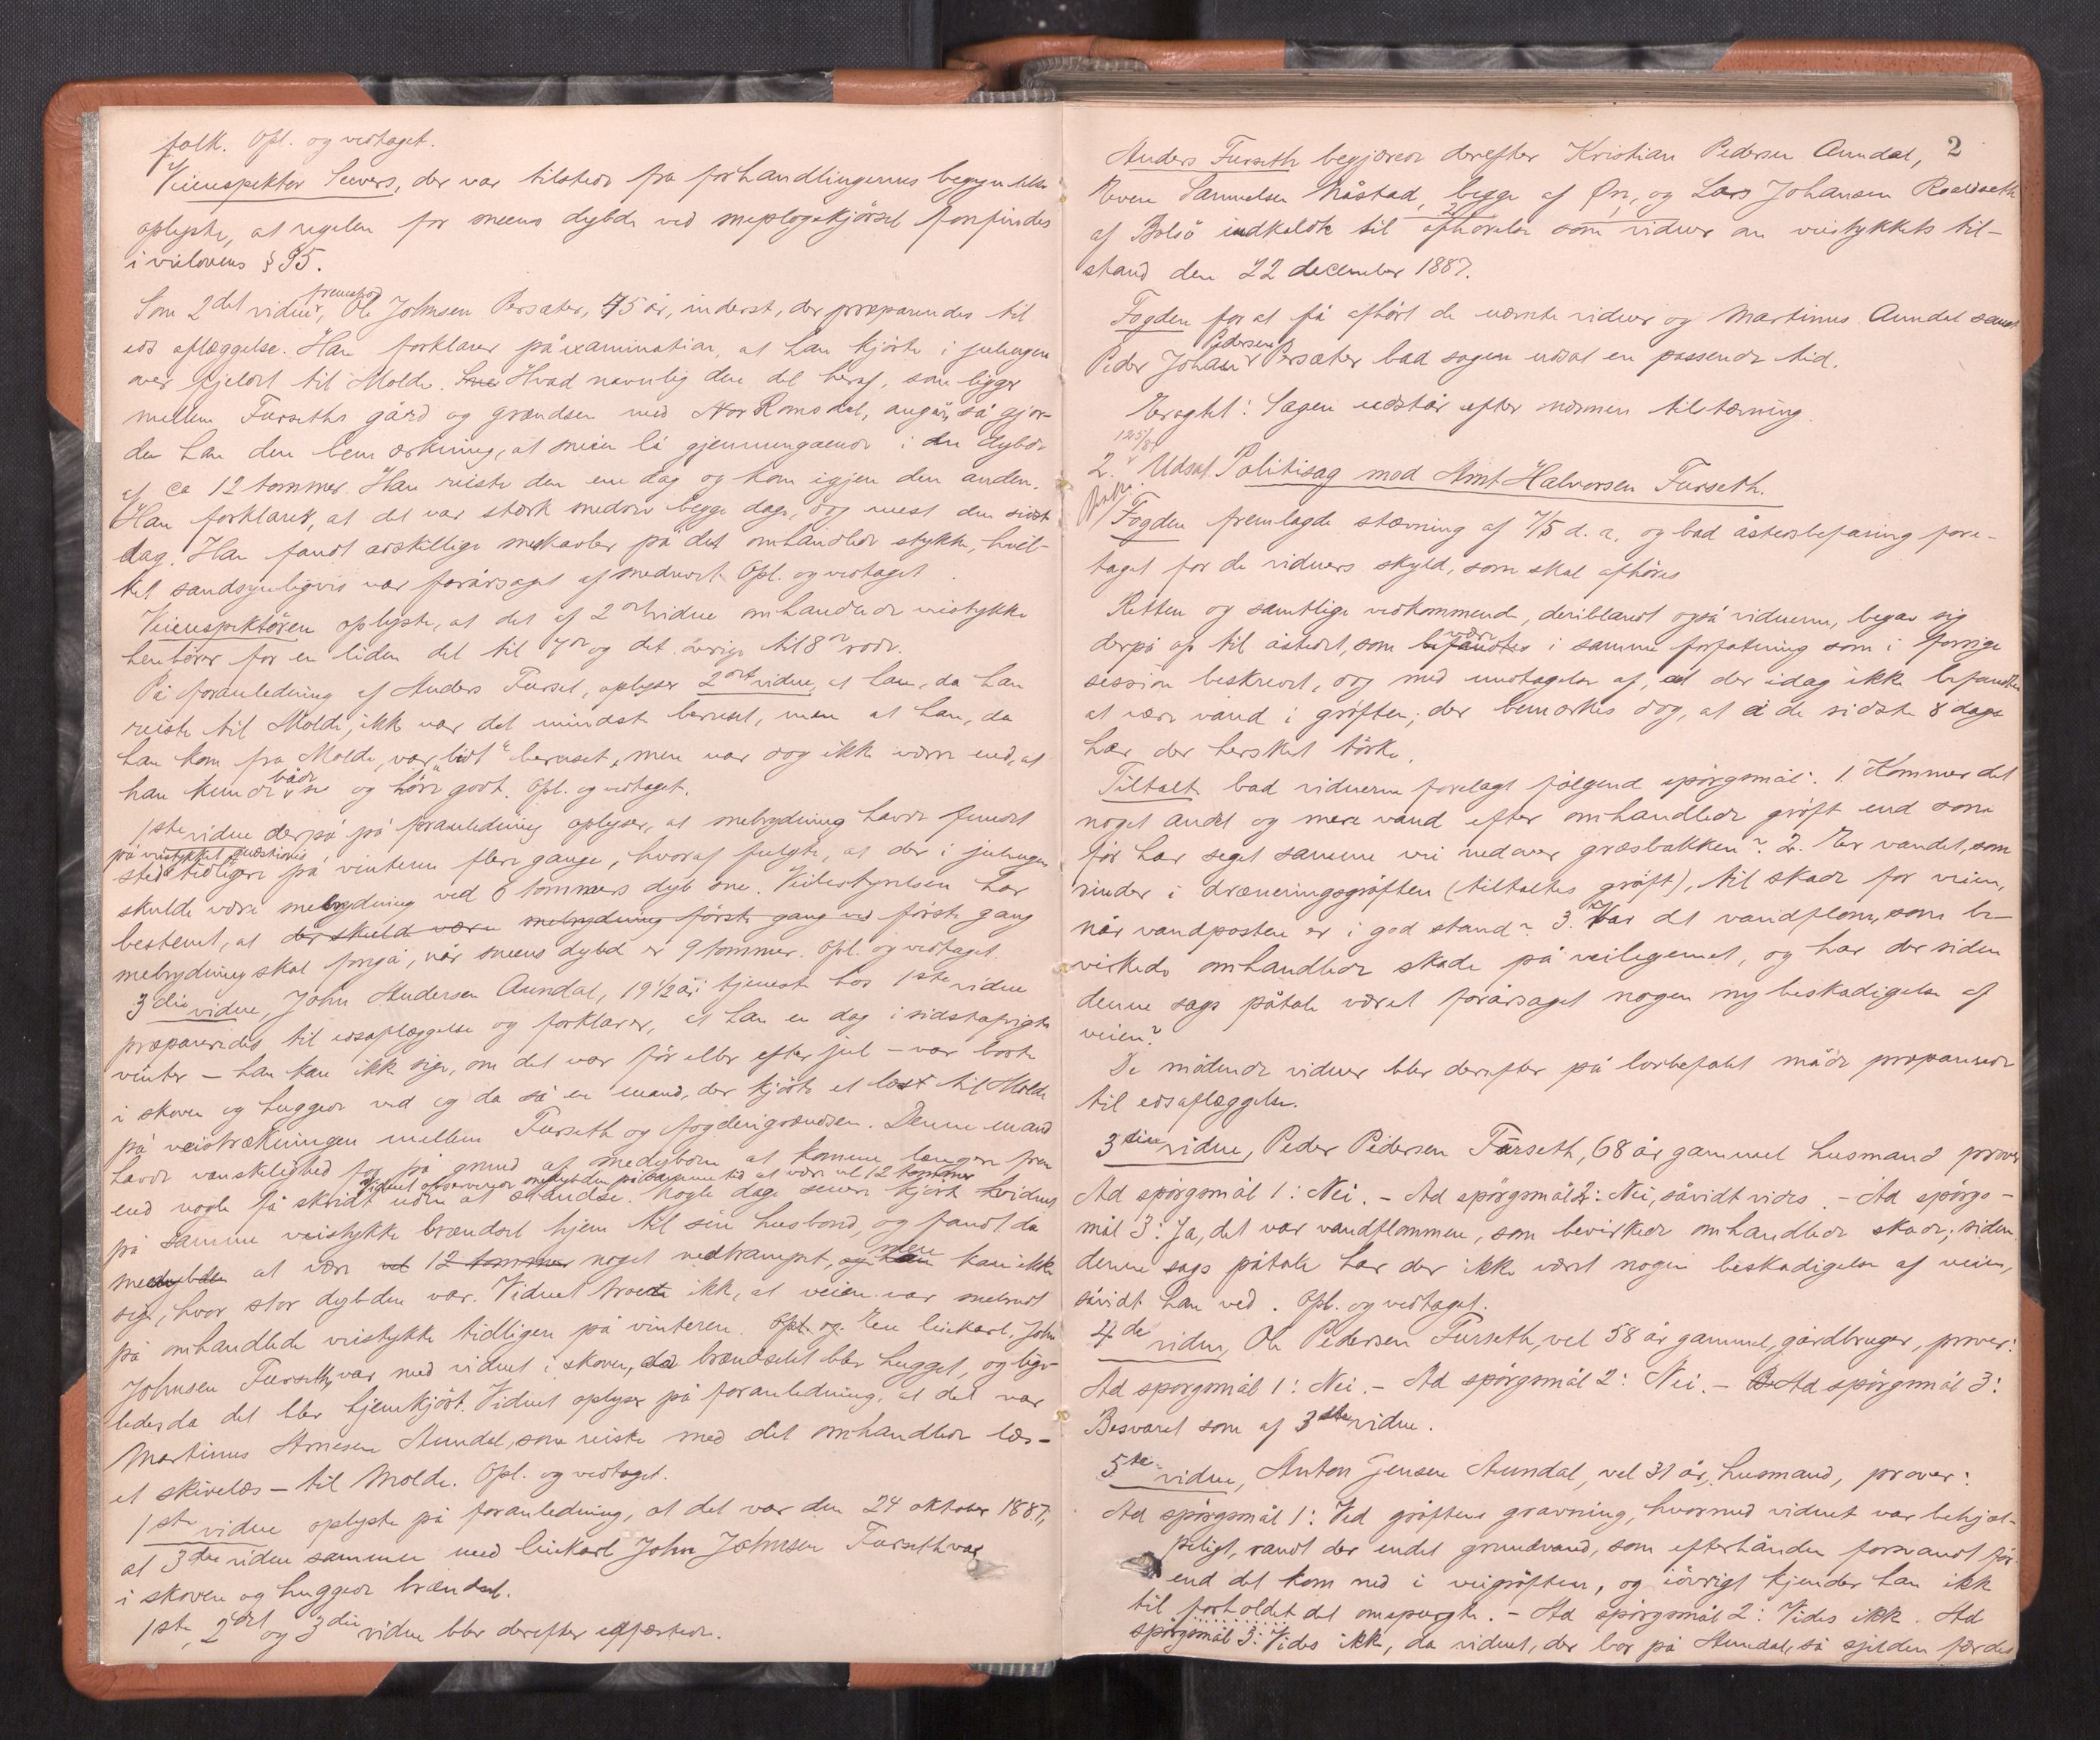 folk. Opl. og vedtaget.
Veiinspektør Sievers, der var tilstede fra forhandlingernes begyndelse
oplyste, at regelen for sneens dybde ved sneplogskjörsel forefindes
i veilovens § 95.
Som 2det vidne, fremstod Ole Johnsen Persæter, 45 år, inderst, der præparerdes til
eds aflæggelse. Han forklarer på examination, at han kjörte i julugen
over fjeldet til Molde. Sne Hvad navnlig den del heraf, som ligger
mellem Furseths gård og grændsen med Nor Romsdal, angår, så gjor-
de han den bemærkning, at sneen lå gjennemgaaende i en dybde
af ca 12 tommer. Han reiste den ene dag og kom igjen den anden.
Han forklarer, at det var stærk snedrev begge dage, dog mest den sidste
dag. Han fandt adskillige sneskavler på det omhandlede stykke, hvil-
ket sandsynligvis var forårsaget af snedrevet. Opl. og vedtaget.
Veiinspektören oplyste, at det af 2det vidne omhandlede veistykke
henhörer for en liden del til 7de og det övrige til 8de rode.
På foranledning af Anders Furset, oplyser 2det vidne, at han, da han
reiste til Molde, ikke var det mindste beruset, men at han, da
han kom fra Molde, var "lidt" beruset, men var dog ikke værre end, at
han kunde både se og höre godt. Opl. og vedtaget.
1ste vidne derpå på foranledning oplyser, at snebrydning havde fundet
på veistykket quæstionis
sted tidligere på vinteren flere gange, hvoraf fulgte, at der i julugen
skulde være snebrydning ved 6 tommers dyb sne. Veibestyrelsen har
bestemt, at der skulde være snebrydning förste gang ved förste gang
snebrydning skal foregå, når sneens dybde er 9 tommer. Opl. og vedtaget.
3die vidne, John Andersen Aundal, 19 1/2 år, tjeneste hos 1ste vidne
præpareredes til edsaflæggelse og forklarer, at han en dag i sidstafvigte
vinter – han kan ikke sige, om det var för eller efter jul – var borte
i skoven og huggede ved og da så en mand, der kjörte et læs til Molde
på veistrækningen mellem Furseth og fogderigrændsen. Denne mand
havde vanskelighed for på grund af snedybden at komme længere frem
vidnet observerede snedybden på samme tid at være vel 12 tommer
end nogle få skridt uden at standse. Nogle dage senere kjörte vidnet
på samme veistykke brændsel hjem til sin husbond, og fandt da
snedybden at være vel 12 tommer noget nedtrampet, og han men kan ikke
sige, hvor stor dybden var. Vidnet troede ikke, at veien var snebrudt
på omhandlede veistykke tidligere på vinteren. Opl. og. En leiekarl, John
Johnsen Furseth, var med vidnet i skoven, da brændselet blev hugget, og lige-
ledes da det blev hjemkjört. Vidnet oplyser på foranledning, at det var
Martinus Arnesen Aundal, som reiste med det omhandlede læs –
et skivelæs – til Molde. Opl. og vedtaget.
1ste vidne oplyste på foranledning, at det var den 24 oktober 1887,
at 3die vidne sammen med leiekarl John Johnsen Furseth var
i skoven og huggede brændsel.
1ste, 2det og 3die vidne blev derefter edfæstede.
2
Anders Furseth begjærede derefter Kristian Pedersen Aundal,
Samuelsen Nåstad, begge af Ör, og Lars Johansen Roaldseth
af Bolsö indkaldte til afhörelse som vidner om veistykkets til-
stand den 22 december 1887.
Fogden for at få afhört de nævnte vidner og Martinus Aundal samt
Peder Johan Pedersen Persæter bad sagen udsat en passende tid.
Eragtet: Sagen udstår efter nærmere tilstævning.
125/87
2. Udsat Politisag mod Arnt Halvorsen Furseth.
Fogden fremlagde stævning af 7/5 d. a. og bad åstedsbefaring fore-
taget for de vidners skyld, som skal afhöres
Retten og samtlige vedkommende, deriblandt også vidnerne, begav sig
derpå op til åstedet, som befandtes være i samme forfatning som i forrige
session beskrevet, dog med undtagelse af, at der idag ikke befandtes
at være vand i gröften; der bemærkes dog, at i de sidste 8 dage
har der hersket törke.
Tiltalte bad vidnerne forelagt fölgende spörgsmål: 1. Kommer det
noget andet og mere vand efter omhandlede gröft end som
för har seget samme vei nedover græsbakken? 2. Er vandet, som
rinder i dræneringsgröften (tiltaltes gröft), til skade for veien,
når vandposten er i god stand? 3. Var det vandflom, som be-
virkede omhandlede skade på veilegemet, og har der siden
denne sags påtale været forårsaget nogen ny beskadigelse af
veien?
De mödende vidner blev derefter på lovbefalet måde præparerede
til edsaflæggelse.
3die vidne, Peder Pedersen Furseth, 68 år gammel husmand prover
Ad spörgsmål 1: Nei. – Ad spörgsmål 2: Nei, såvidt vides. – Ad spörgs-
mål 3: Ja, det var vandflommen, som bevirkede omhandlede skade; siden
denne sags påtale har der ikke været nogen beskadigelse af veien,
såvidt han ved. Opl. og vedtaget.
4de vidne, Ole Pedersen Furseth, vel 58 år gammel, gårdbruger, prover:
Ad spörgsmål 1: Nei. – Ad spörgsmål 2: Nei. – Ad spörgsmål 3:
Besvaret som af 3die vidne.
5te vidne, Anton Jensen Aundal, vel 31 år, husmand, prover:
Ad spörgsmål 1: Ved gröftens gravning, hvormed vidnet var behjæl-
peligt, randt der endel grundvand, som efterhånden forsvandt för-
end det kom ned i veigröften, og iövrigt kjender han ikke
til forholdet det omspurgte. – Ad spörgsmål 2: Vides ikke. Ad
spörgsmål 3: Vides ikke, da vidnet, der bor på Aundal, så sjelden færdes